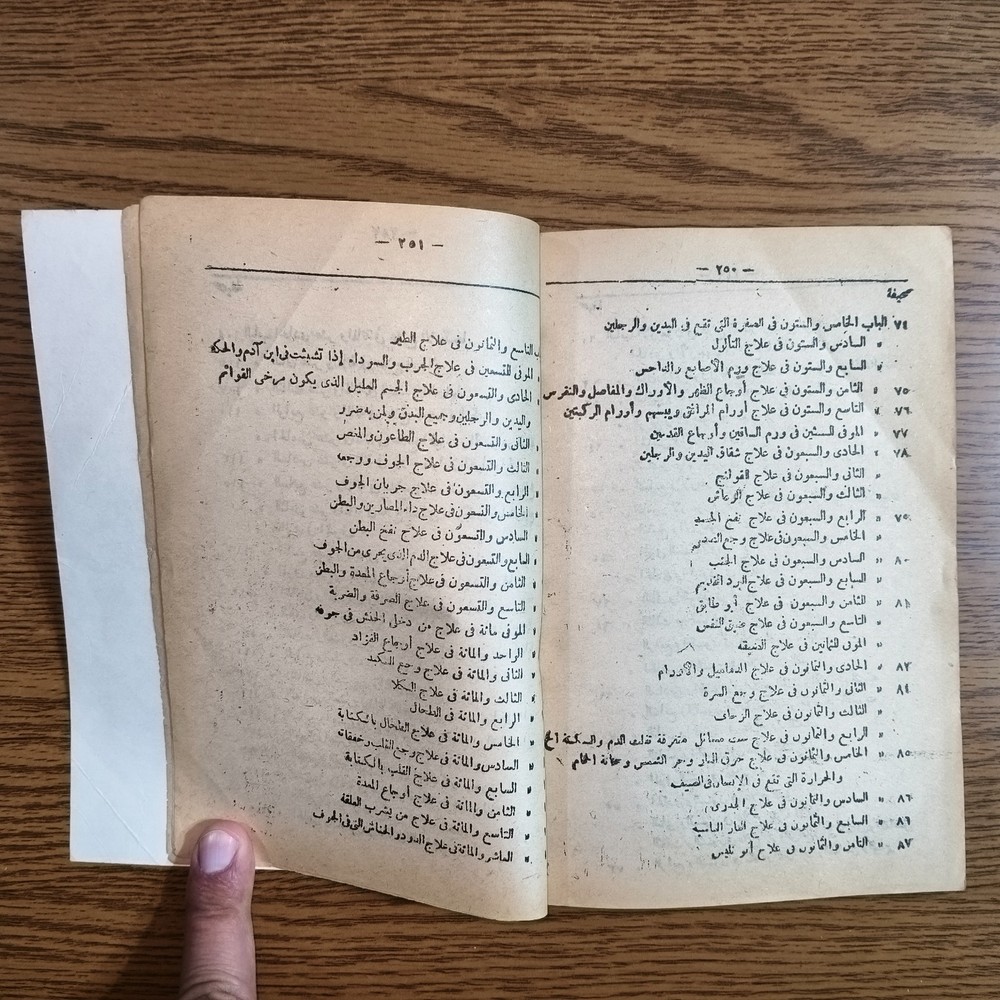 — ٢٥٠ —
صحيفة
٧٤ الباب الخامس والستون فى الصفرة التى تقع فى اليدين والرجلين
» السادس والستون فى علاج الثألول
» السابع والستون فى علاج ورم الأصابع والداحس
٧٥ » الثامن والستون فى علاج أوجاع الظهر والأوراك والمفاصل والنقرس
٧٦ » التاسع والستون فى علاج أورام المرافق ويبسهم وأورام الركبتين
٧٧ » الموفى للسبعين فى ورم الساقين وأوجاع القدمين
٧٨ » الحادى والسبعون فى علاج شقاق اليدين والرجلين
» الثانى والسبعون فى علاج القوالج
» الثالث والسبعون فى علاج
٧٥ » الرابع والسبعون فى علاج نفخ الجسد
» الخامس والسبعون فى علاج وجع
٨٠ » السادس والسبعون فى علاج الجنب
» السابع والسبعون فى علاج البرد القديم
٨١ » الثامن والسبعون فى علاج أبو طابق
» التاسع والسبعون فى علاج ضيق النفس
» الموفى للثمانين فى علاج
٨٣ » الحادى والثمانون فى علاج الدماميل والأورام
٨٤ » الثانى والثمانون فى علاج وجع السرة
» الثالث والثمانون فى علاج الرعاف
» الرابع والثمانون فى علاج ست مسائل متفرقة الدم والسكتة الخ
٨٥ » الخامس والثمانون فى علاج حرق النار وحر الشمس الحمام
والحرارة التى تقع فى الإنسان فى الصيف
٨٦ » السادس والثمانون فى علاج الجدرى
٨٦ » السابع والثمانون فى علاج النار الفارسية
٨٧ » الثامن والثمانون فى علاج أبو تليس
— ٢٥١ —
التاسع والثمانون فى علاج الطير
» الموفى للتسعين فى علاج الجرب والسوداء إذا تشبثت فى ابن آدم والحكة
» الحادى والتسعون فى علاج الجسم العليل الذى يكون مرخى القوائم
واليدين والرجلين وجميع البدن ولمن به ضر
» الثانى والتسعون فى علاج الطاعون والمغص
» الثالث والتسعون فى علاج الجوف ووجعه
» الرابع والتسعون فى علاج جريان الجوف
» الخامس والتسعون فى علاج داء المصارين والبطن
» السادس والتسعون فى علاج نفخ البطن
» السابع والتسعون فى علاج الدم الذى يجرى من الجوف
» الثامن والتسعون فى علاج أوجاع المعدة والبطن
» التاسع والتسعون فى علاج الصرفة والضربة
» الموفى مائة فى علاج من دخل الحنش فى جوفه
» الواحد والمائة فى علاج أوجاع الفؤاد
» الثانى والمائة فى علاج وجع الكبد
» الثالث والمائة فى علاج الكلا
» الرابع والمائة فى الطحال
» الخامس والمائة فى علاج الطحال بالكتابة
» السادس والمائة فى علاج وجع القلب وخفقانه
» السابع والمائة فى علاج القلب بالكتابة
» الثامن والمائة فى علاج أوجاع المعدة
» التاسع والمائة فى علاج من يشرب العلقة
» العاشر والمائة فى علاج الدود والحناش التى فى الجوف